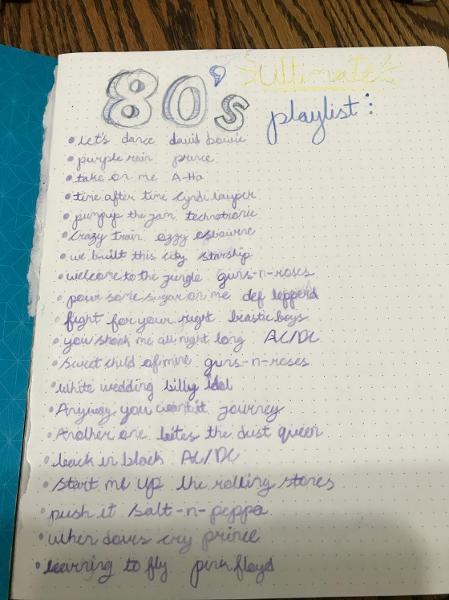 80's Ultimate
playlist:
• let's dance david bowie
• purple rain prince
• take on me A-Ha
• time after time Cyndi lauper
• pump up the jam technotronic
• Crazy train ozzy osbourne
• we built this city starship
• welcome to the jungle guns-n-roses
• pour some sugar on me def leppard
• fight for your right beastie boys
• you shook me all night long AC/DC
• Sweet child of mine guns-n-roses
• white wedding billy Idol
• Anyway you want it journey
• Another one bites the dust queen
• back in black AC/DC
• Start me up the rolling stones
• push it Salt-n-peppa
• when doves cry prince
• learning to fly pink floyd